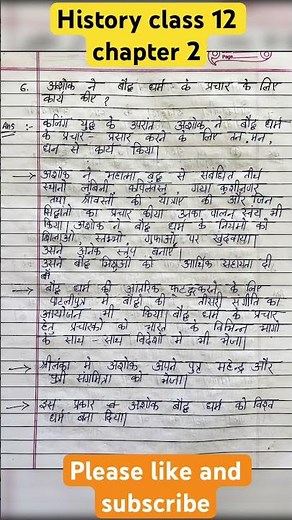 History class 12
chapter 2
Page
6. अशोक ने बौद्ध धर्म के प्रचार के लिए
कार्य किए ?
Ans :- कलिंग युद्ध के उपरांत अशोक ने बौद्ध धर्म
के प्रचार - प्रसार करने के लिए तन, मन,
धन से कार्य किया।
→ अशोक ने महात्मा बुद्ध से संबंधित तीर्थ
स्थानों लुंबिनी, कपिलवस्तु, गया, कुशीनगर
तथा श्रावस्ती की यात्राएं की और जिन
सिद्धांतों का प्रचार किया उनका पालन स्वयं भी
किया। अशोक ने बौद्ध धर्म के नियमों को
शिलाओं, स्तम्भों, गुफाओं पर खुदवाया।
उसने अनेक स्तूप बनाए।
उसने बौद्ध भिक्षुओं को आर्थिक सहायता दी
→ बौद्ध धर्म की आंतरिक फूट के लिए
पाटलीपुत्र में बौद्धों की तीसरी संगीति का
आयोजन भी किया। बौद्ध धर्म के प्रचार
हेतु प्रचारकों को भारत के विभिन्न भागों
के साथ - साथ विदेशों में भी भेजा।
→ श्रीलंका में अशोक अपने पुत्र महेन्द्र और
पुत्री संघमित्रा को भेजा।
→ इस प्रकार अशोक बौद्ध धर्म को विश्व
धर्म बना दिया।
Please like and
subscribe